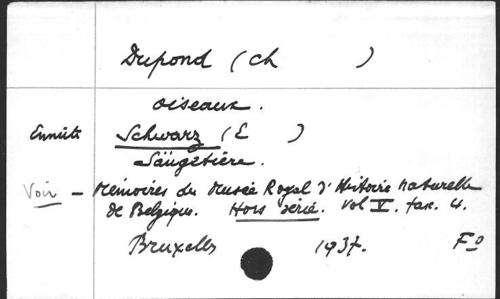 Dupond (Ch )
Oiseaux.
Ensuite Schwarz (E )
Säugetiere.
Voir - Mémoires du Musée Royal d'Histoire Naturelle
de Belgique. Hors série. Vol V. fasc. 4.
Bruxelles 1937. Fo